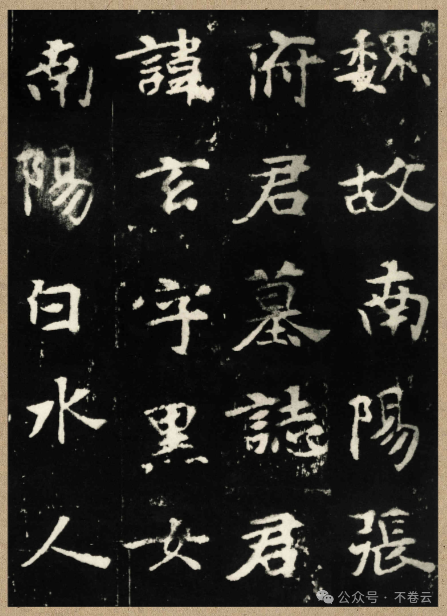 魏故南陽張
府君墓誌君
諱玄字黑女
南陽白水人
公众号·不卷云